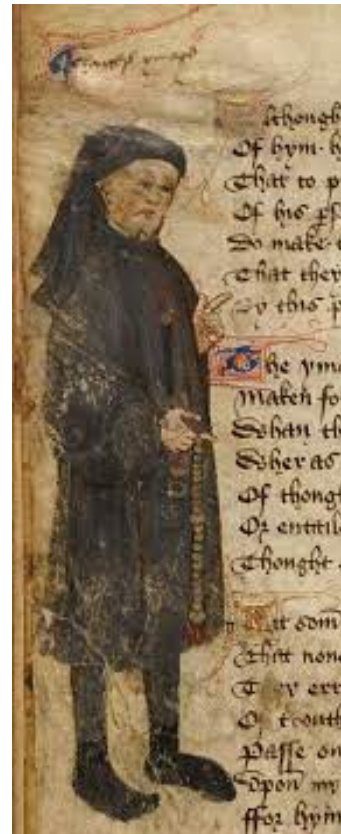 Chaucers ymage
Althoug
Of hym
That to p
Of his ps
Do make
That they
By this p
The yma
Maken fo
Whan th
Wher as
Of thoug
Or entaile
Thought
Yit som
That none
They err
Of trouth
Passe ou
Upon my
ffor hym